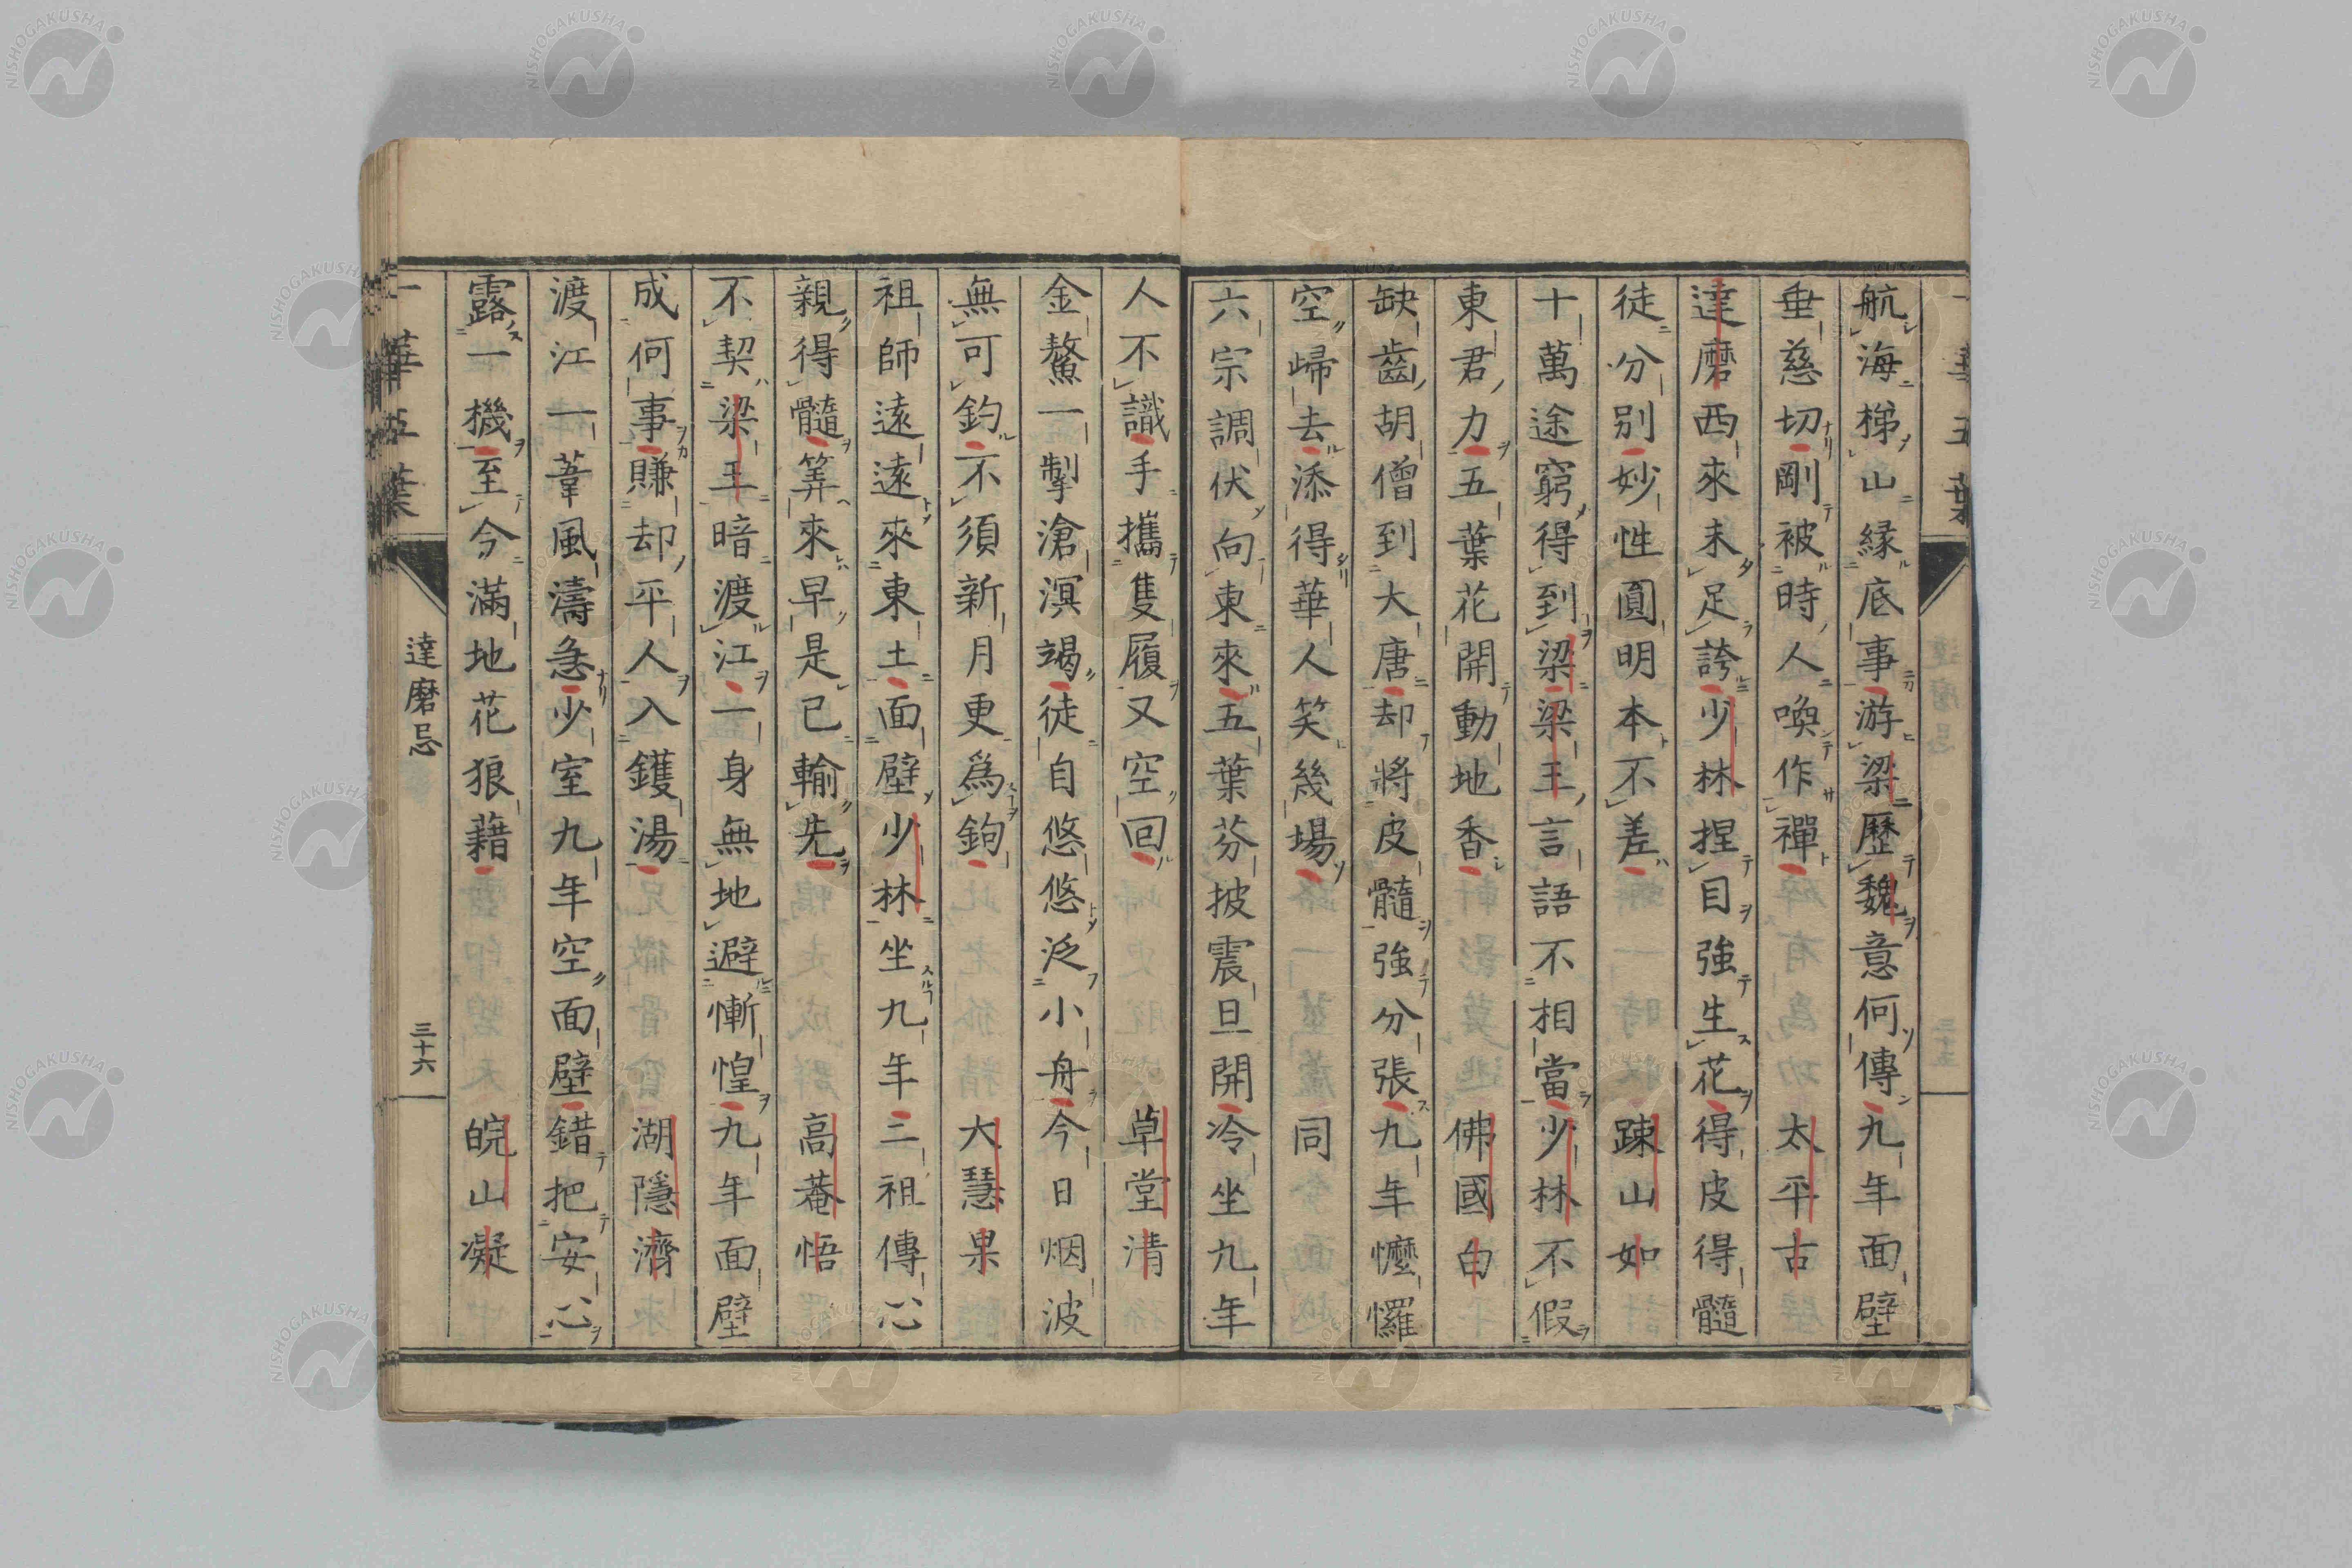 航海梯山縁底事游梁歷魏意何傳九年面壁
垂慈切剛被時人喚作禪太平古
達磨西來未足誇少林捏目強生花得皮得髓
徒分別妙性圓明本不差踈山如
十萬途窮得到梁梁王言語不相當少林不假
東君力五葉花開動地香佛國白
缺齒胡僧到大唐却將皮髓強分張九年懡㦬
空歸去添得華人笑幾場同
六宗調伏向東來五葉芬披震旦開冷坐九年
人不識手攜隻履又空回草堂清
金鰲一掣滄溟竭徒自悠悠泛小舟今日烟波
無可釣不須新月更爲鉤大慧果
祖師遠遠來東土面壁少林坐九年三祖傳心
親得髓筭來早是已輸先高菴悟
不契梁王暗渡江一身無地避慚惶九年面壁
成何事賺却平人入鑊湯湖隱濟
渡江一葦風濤急少室九年空面壁錯把安心
露一機至今滿地花狼藉皖山凝
一華五葉
達磨忌
三十六